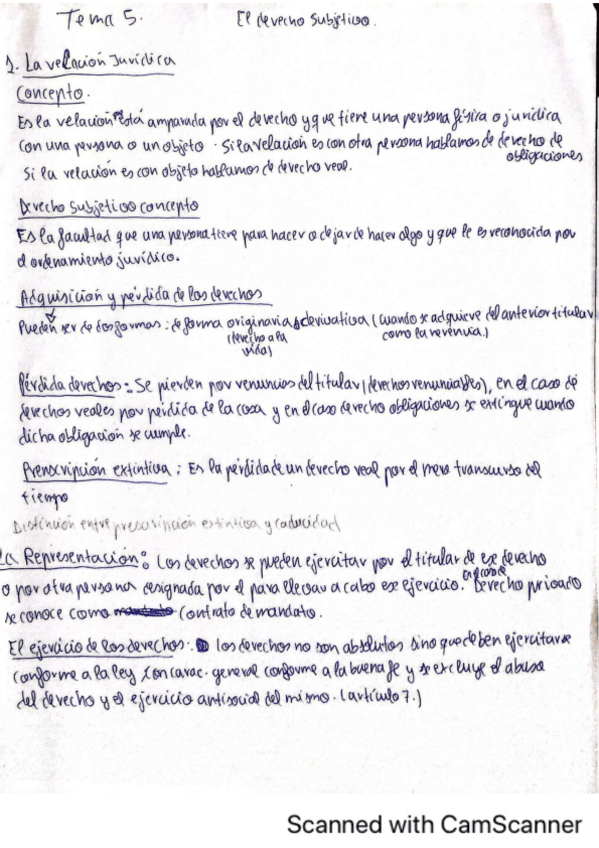 Tema 5. El derecho Subjetivo.
1. La relación Jurídica
Concepto.
Es la relación que está amparada por el derecho y que tiene una persona física o jurídica
con una persona o un objeto. Si la relación es con otra persona hablamos de derecho de
obligaciones
Si la relación es con objeto hablamos de derecho real.
Derecho Subjetivo concepto
Es la facultad que una persona tiene para hacer o dejar de hacer algo y que le es reconocida por
el ordenamiento jurídico.
Adquisicion y pérdida de los derechos
Pueden ser de dos formas: de forma originaria derivativa (cuando se adquiere del anterior titular
(derecho a la como la herencia)
vida)
Pérdida derechos: Se pierden por renuncias del titular (derechos renunciables), en el caso de
derechos reales por pérdida de la cosa y en el caso derecho obligaciones se extingue cuando
dicha obligación se cumple.
Prenscripción extintiva: Es la pérdida de un derecho real por el mero transcurso del
tiempo
Distinción entre prescripción extintiva y caducidad
La Representación: Los derechos se pueden ejercitar por el titular de ese derecho
o por otra persona designada por el para llevar a cabo ese ejercicio. Derecho privado
se conoce como contrato de mandato.
El ejercicio de los derechos: los derechos no son absolutos sino que deben ejercitarse
conforme a la ley y con carac. general conforme a la buena fe y se excluye el abuso
del derecho y el ejercicio antisocial del mismo. (artículo 7.)
Scanned with CamScanner